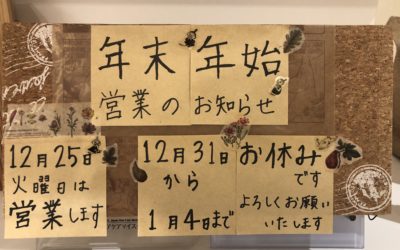 年末年始
営業のお知らせ
12月25日
火曜日は
営業します
12月31日
から
1月4日まで
お休み
です
よろしくお願い
いたします